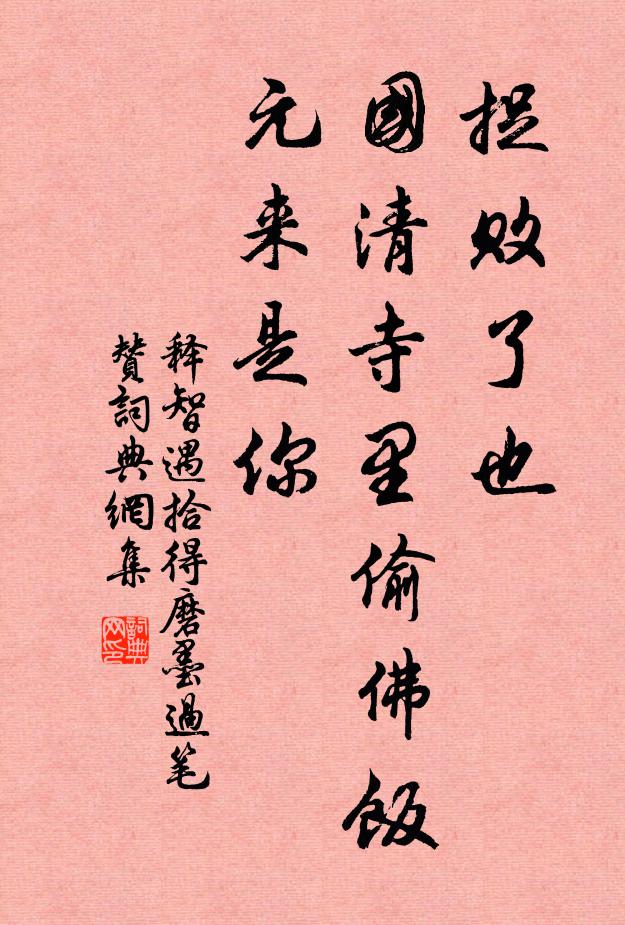 捉败了也
國清寺里偷佛飯
元来是你
释智遇拾得磨墨過笔
贊詞典網集
詞典
网印